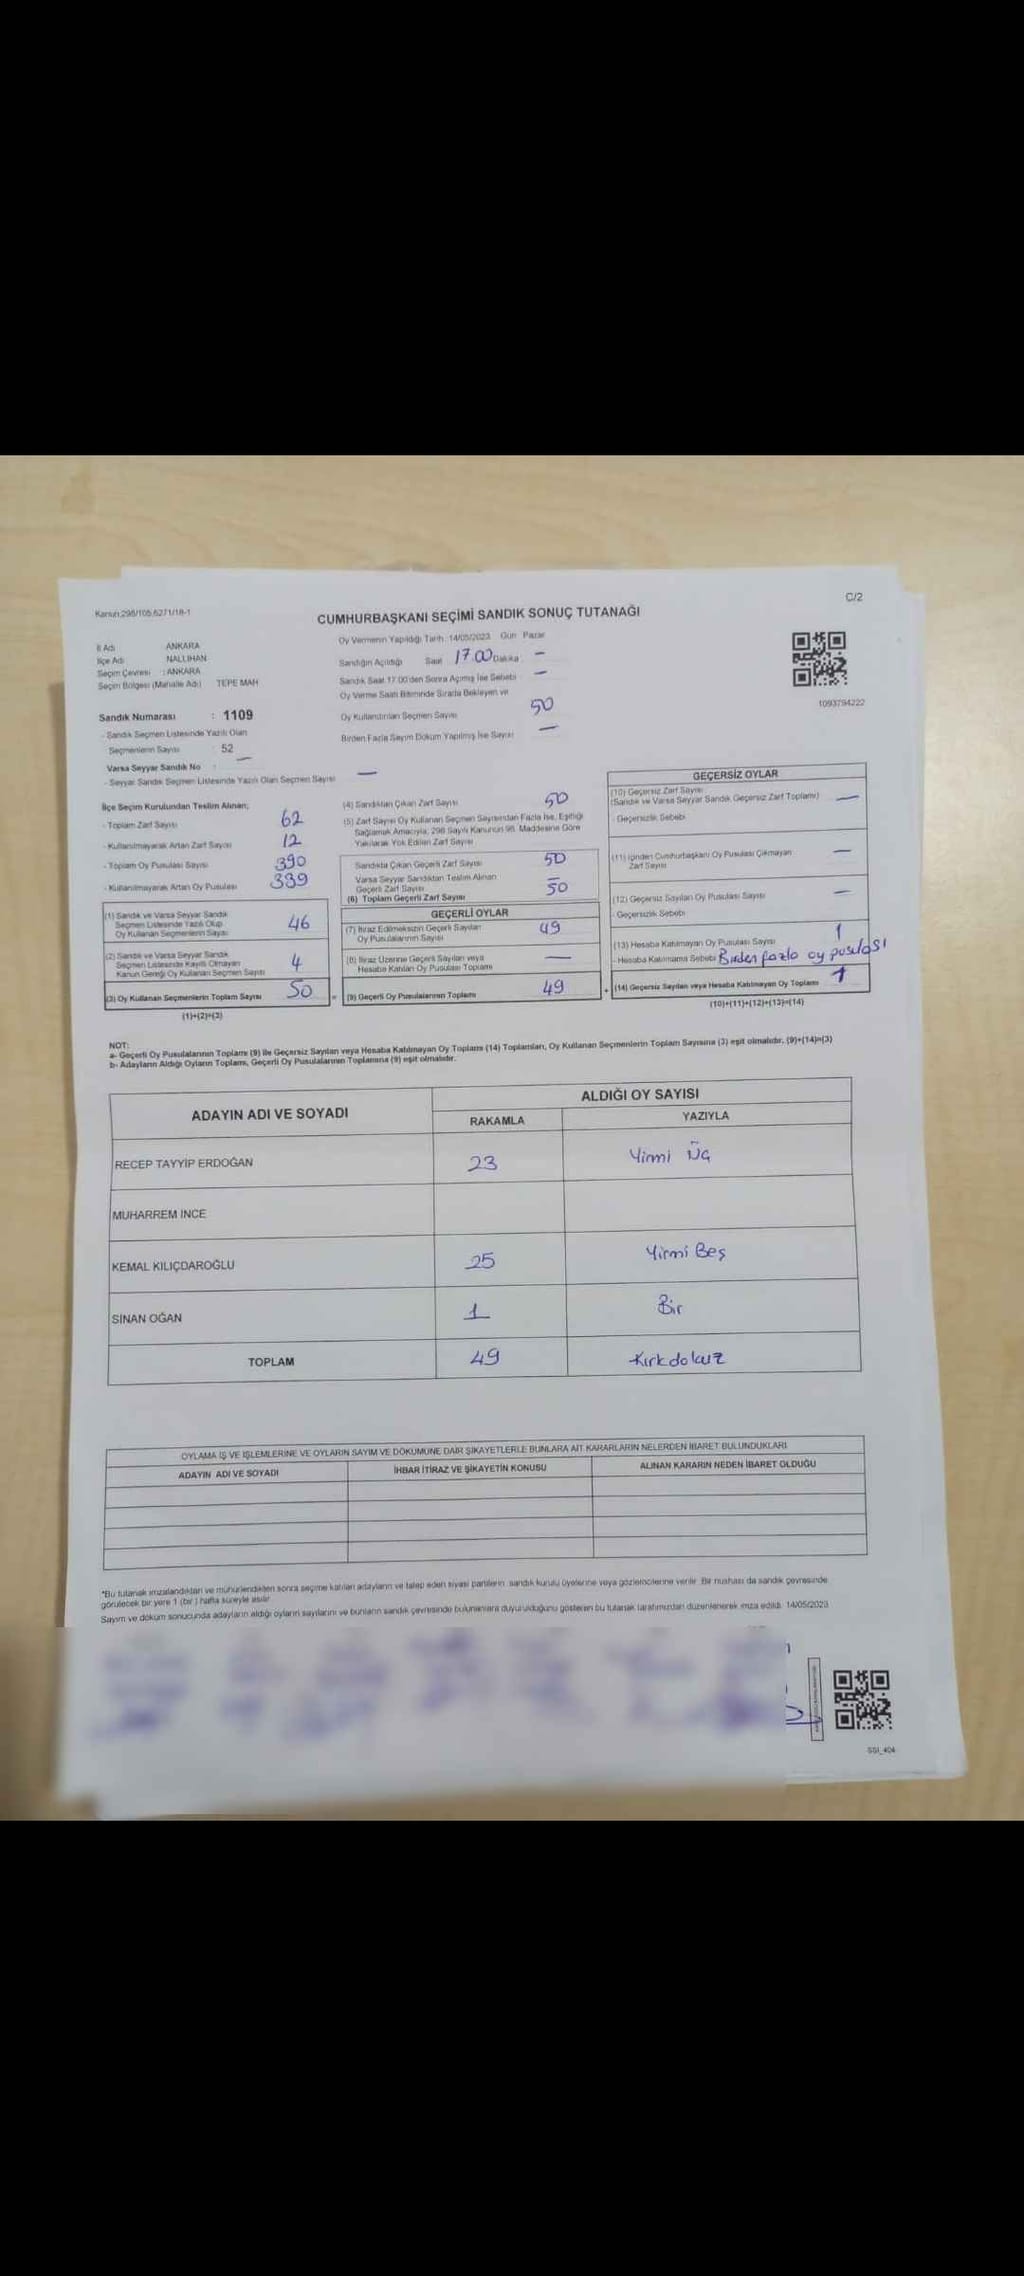 Kanun:298/105,6271/18-1
C/2
CUMHURBAŞKANI SEÇİMİ SANDIK SONUÇ TUTANAĞI
İl Adı ANKARA
İlçe Adı NALLIHAN
Seçim Çevresi : ANKARA
Seçim Bölgesi (Mahalle Adı) TEPE MAH
Sandık Numarası : 1109
- Sandık Seçmen Listesinde Yazılı Olan
Seçmenlerin Sayısı : 52
Varsa Seyyar Sandık No : —
- Seyyar Sandık Seçmen Listesinde Yazılı Olan Seçmen Sayısı —
Oy Vermenin Yapıldığı Tarih: 14/05/2023 Gün Pazar
Sandığın Açıldığı Saat 17.00 Dakika : —
Sandık Saat 17:00'den Sonra Açılmış İse Sebebi : —
Oy Verme Saati Bitiminde Sırada Bekleyen ve
Oy Kullandırılan Seçmen Sayısı 50
Birden Fazla Sayım Döküm Yapılmış İse Sayısı —
1093794222
İlçe Seçim Kurulundan Teslim Alınan;
- Toplam Zarf Sayısı 62
- Kullanılmayarak Artan Zarf Sayısı 12
- Toplam Oy Pusulası Sayısı 390
- Kullanılmayarak Artan Oy Pusulası 339
(1) Sandık ve Varsa Seyyar Sandık
Seçmen Listesinde Yazılı Olup
Oy Kullanan Seçmenlerin Sayısı 46
(2) Sandık ve Varsa Seyyar Sandık
Seçmen Listesinde Kayıtlı Olmayan
Kanun Gereği Oy Kullanan Seçmen Sayısı 4
(3) Oy Kullanan Seçmenlerin Toplam Sayısı 50
(1)+(2)=(3)
(4) Sandıktan Çıkan Zarf Sayısı 50
(5) Zarf Sayısı Oy Kullanan Seçmen Sayısından Fazla İse, Eşitliği
Sağlamak Amacıyla, 298 Sayılı Kanunun 98. Maddesine Göre
Yakılarak Yok Edilen Zarf Sayısı
Sandıkta Çıkan Geçerli Zarf Sayısı 50
Varsa Seyyar Sandıktan Teslim Alınan
Geçerli Zarf Sayısı —
(6) Toplam Geçerli Zarf Sayısı 50
GEÇERLİ OYLAR
(7) İtiraz Edilmeksizin Geçerli Sayılan
Oy Pusulalarının Sayısı 49
(8) İtiraz Üzerine Geçerli Sayılan veya
Hesaba Katılan Oy Pusulası Toplamı —
= (9) Geçerli Oy Pusulalarının Toplamı 49
GEÇERSİZ OYLAR
(10) Geçersiz Zarf Sayısı
(Sandık ve Varsa Seyyar Sandık Geçersiz Zarf Toplamı) —
- Geçersizlik Sebebi
(11) İçinden Cumhurbaşkanı Oy Pusulası Çıkmayan
Zarf Sayısı —
(12) Geçersiz Sayılan Oy Pusulası Sayısı —
- Geçersizlik Sebebi
(13) Hesaba Katılmayan Oy Pusulası Sayısı 1
- Hesaba Katılmama Sebebi Birden fazla oy pusulası
+ (14) Geçersiz Sayılan veya Hesaba Katılmayan Oy Toplamı 1
(10)+(11)+(12)+(13)=(14)
NOT:
a- Geçerli Oy Pusulalarının Toplamı (9) ile Geçersiz Sayılan veya Hesaba Katılmayan Oy Toplamı (14) Toplamları, Oy Kullanan Seçmenlerin Toplam Sayısına (3) eşit olmalıdır. (9)+(14)=(3)
b- Adayların Aldığı Oyların Toplamı, Geçerli Oy Pusulalarının Toplamına (9) eşit olmalıdır.
ADAYIN ADI VE SOYADI
ALDIĞI OY SAYISI
RAKAMLA YAZIYLA
RECEP TAYYİP ERDOĞAN 23 Yirmi Üç
MUHARREM İNCE
KEMAL KILIÇDAROĞLU 25 Yirmi Beş
SİNAN OĞAN 1 Bir
TOPLAM 49 Kırkdokuz
OYLAMA İŞ VE İŞLEMLERİNE VE OYLARIN SAYIM VE DÖKÜMÜNE DAİR ŞİKAYETLERLE BUNLARA AİT KARARLARIN NELERDEN İBARET BULUNDUKLARI
ADAYIN ADI VE SOYADI İHBAR İTİRAZ VE ŞİKAYETİN KONUSU ALINAN KARARIN NEDEN İBARET OLDUĞU
*Bu tutanak imzalandıktan ve mühürlendikten sonra seçime katılan adayların ve talep eden siyasi partilerin sandık kurulu üyelerine veya gözlemcilerine verilir. Bir nüshası da sandık çevresinde
görülecek bir yere 1 (bir) hafta süreyle asılır.
Sayım ve döküm sonucunda adayların aldığı oyların sayılarını ve bunların sandık çevresinde bulunanlara duyurulduğunu gösteren bu tutanak tarafımızdan düzenlenerek imza edildi. 14/05/2023
SSI_404